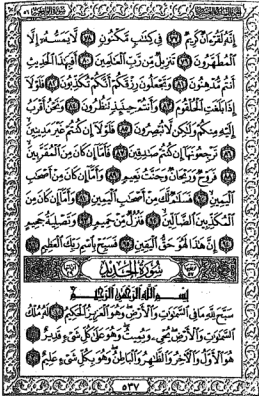 إِنَّهُۥ لَقُرْءَانٌ كَرِيمٌ ٧٧ فِى كِتَٰبٍ مَّكْنُونٍ ٧٨ لَّا يَمَسُّهُۥٓ إِلَّا
ٱلْمُطَهَّرُونَ ٧٩ تَنزِيلٌ مِّن رَّبِّ ٱلْعَٰلَمِينَ ٨٠ أَفَبِهَٰذَا ٱلْحَدِيثِ
أَنتُم مُّدْهِنُونَ ٨١ وَتَجْعَلُونَ رِزْقَكُمْ أَنَّكُمْ تُكَذِّبُونَ ٨٢ فَلَوْلَآ
إِذَا بَلَغَتِ ٱلْحُلْقُومَ ٨٣ وَأَنتُمْ حِينَئِذٍ تَنظُرُونَ ٨٤ وَنَحْنُ أَقْرَبُ
إِلَيْهِ مِنكُمْ وَلَٰكِن لَّا تُبْصِرُونَ ٨٥ فَلَوْلَآ إِن كُنتُمْ غَيْرَ مَدِينِينَ ٨٦
تَرْجِعُونَهَآ إِن كُنتُمْ صَٰدِقِينَ ٨٧ فَأَمَّآ إِن كَانَ مِنَ ٱلْمُقَرَّبِينَ ٨٨
فَرَوْحٌ وَرَيْحَانٌ وَجَنَّتُ نَعِيمٍ ٨٩ وَأَمَّآ إِن كَانَ مِنْ أَصْحَٰبِ
ٱلْيَمِينِ ٩٠ فَسَلَٰمٌ لَّكَ مِنْ أَصْحَٰبِ ٱلْيَمِينِ ٩١ وَأَمَّآ إِن كَانَ مِنَ
ٱلْمُكَذِّبِينَ ٱلضَّآلِّينَ ٩٢ فَنُزُلٌ مِّنْ حَمِيمٍ ٩٣ وَتَصْلِيَةُ جَحِيمٍ
٩٤ إِنَّ هَٰذَا لَهُوَ حَقُّ ٱلْيَقِينِ ٩٥ فَسَبِّحْ بِٱسْمِ رَبِّكَ ٱلْعَظِيمِ ٩٦
سُورَةُ الحَدِيدِ
بِسْمِ ٱللَّهِ ٱلرَّحْمَٰنِ ٱلرَّحِيمِ
سَبَّحَ لِلَّهِ مَا فِى ٱلسَّمَٰوَٰتِ وَٱلْأَرْضِ وَهُوَ ٱلْعَزِيزُ ٱلْحَكِيمُ ١ لَهُۥ مُلْكُ
ٱلسَّمَٰوَٰتِ وَٱلْأَرْضِ يُحْىِۦ وَيُمِيتُ وَهُوَ عَلَىٰ كُلِّ شَىْءٍ قَدِيرٌ ٢
هُوَ ٱلْأَوَّلُ وَٱلْءَاخِرُ وَٱلظَّٰهِرُ وَٱلْبَاطِنُ وَهُوَ بِكُلِّ شَىْءٍ عَلِيمٌ ٣
٥٣٧